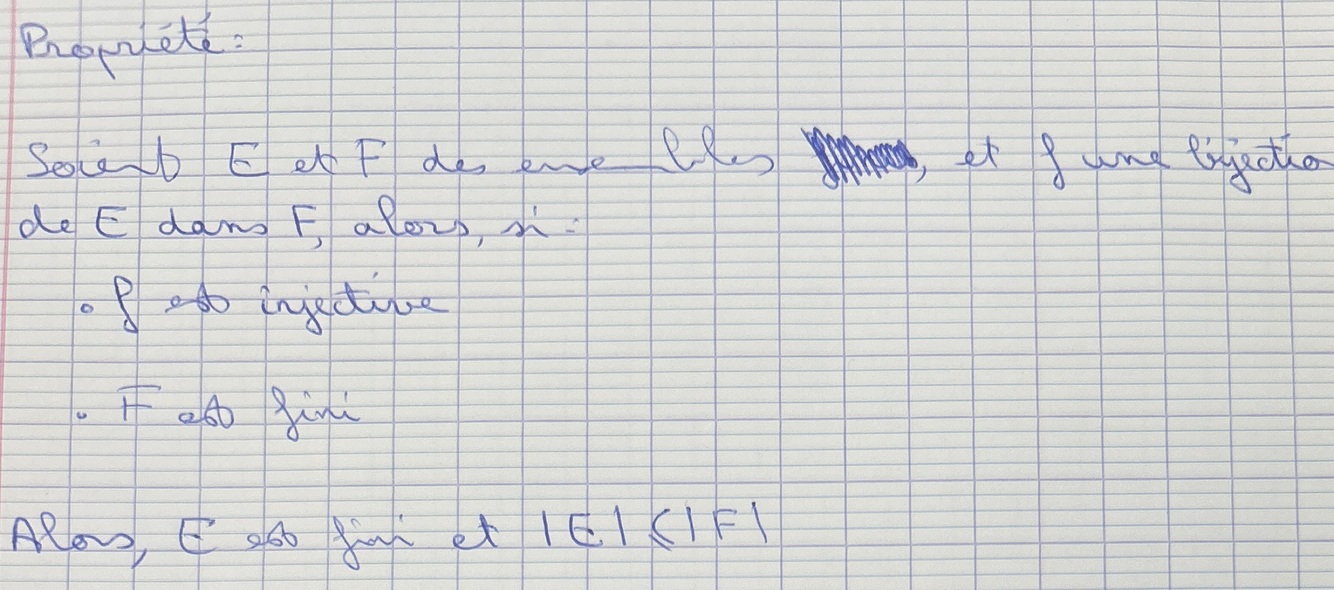 Propriété :
Soient E et F des ensembles , et f une bijectio
de E dans F, alors, si :
• f est injective
• F est fini
Alors, E est fini et |E| ≤ |F|